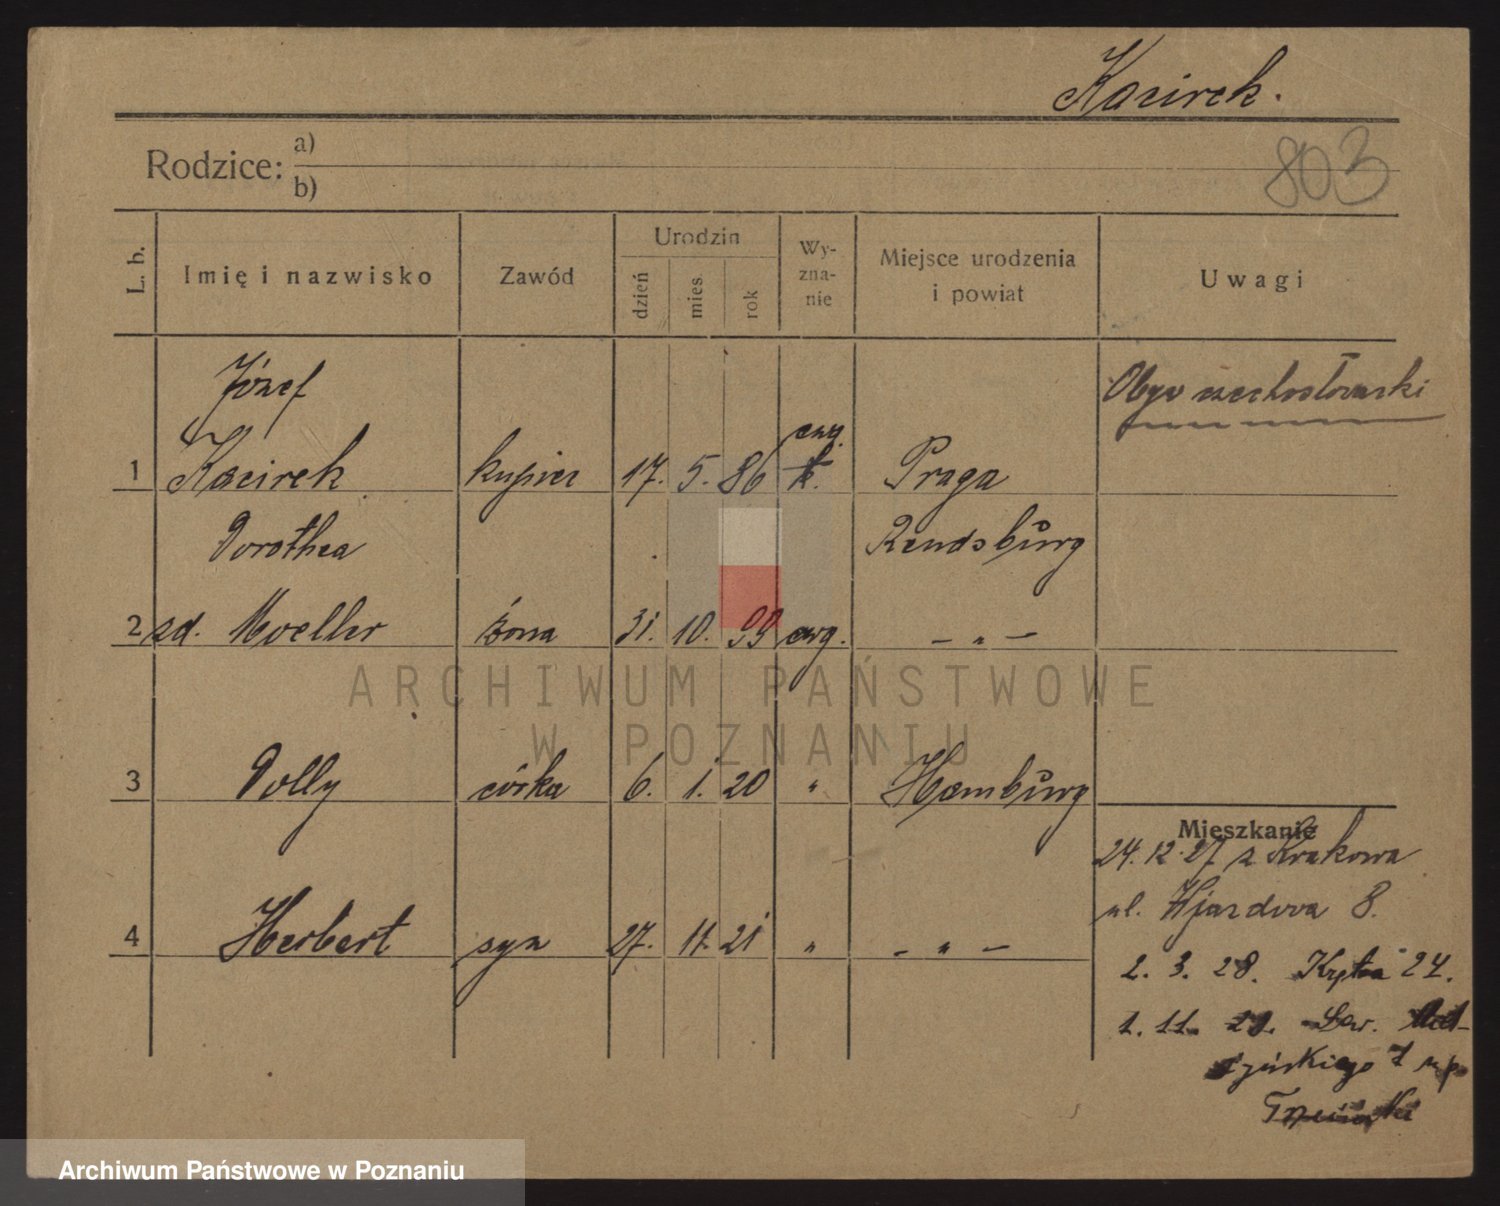 Kacirek.
Rodzice: a)
b)
803
L. b.
Imię i nazwisko
Zawód
Urodzin
dzień
mies.
rok
Wy-
zna-
nie
Miejsce urodzenia
i powiat
Uwagi
Józef
Obyw czechosłowacki
1 Kacirek kupiec 17. 5. 86 ewg. k. Praga
Dorothea Rendsburg
2 zd. Moeller żona 31. 10. 99 ewg. — " —
ARCHIWUM PAŃSTWOWE
W POZNANIU
3 Dolly córka 6. 1. 20 " Hamburg
Mieszkanie
24. 12. 27 z Krakowa
ul. Wjazdowa 8.
4 Herbert syn 27. 11. 21 " — " —
2. 3. 28. 24.
1. 11.
Archiwum Państwowe w Poznaniu